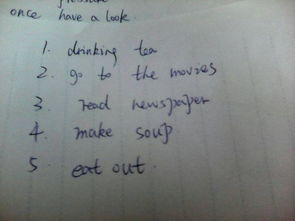 pressure
once have a look.
1. drinking tea
2. go to the movies
3. read newspaper
4. make soup
5. eat out.